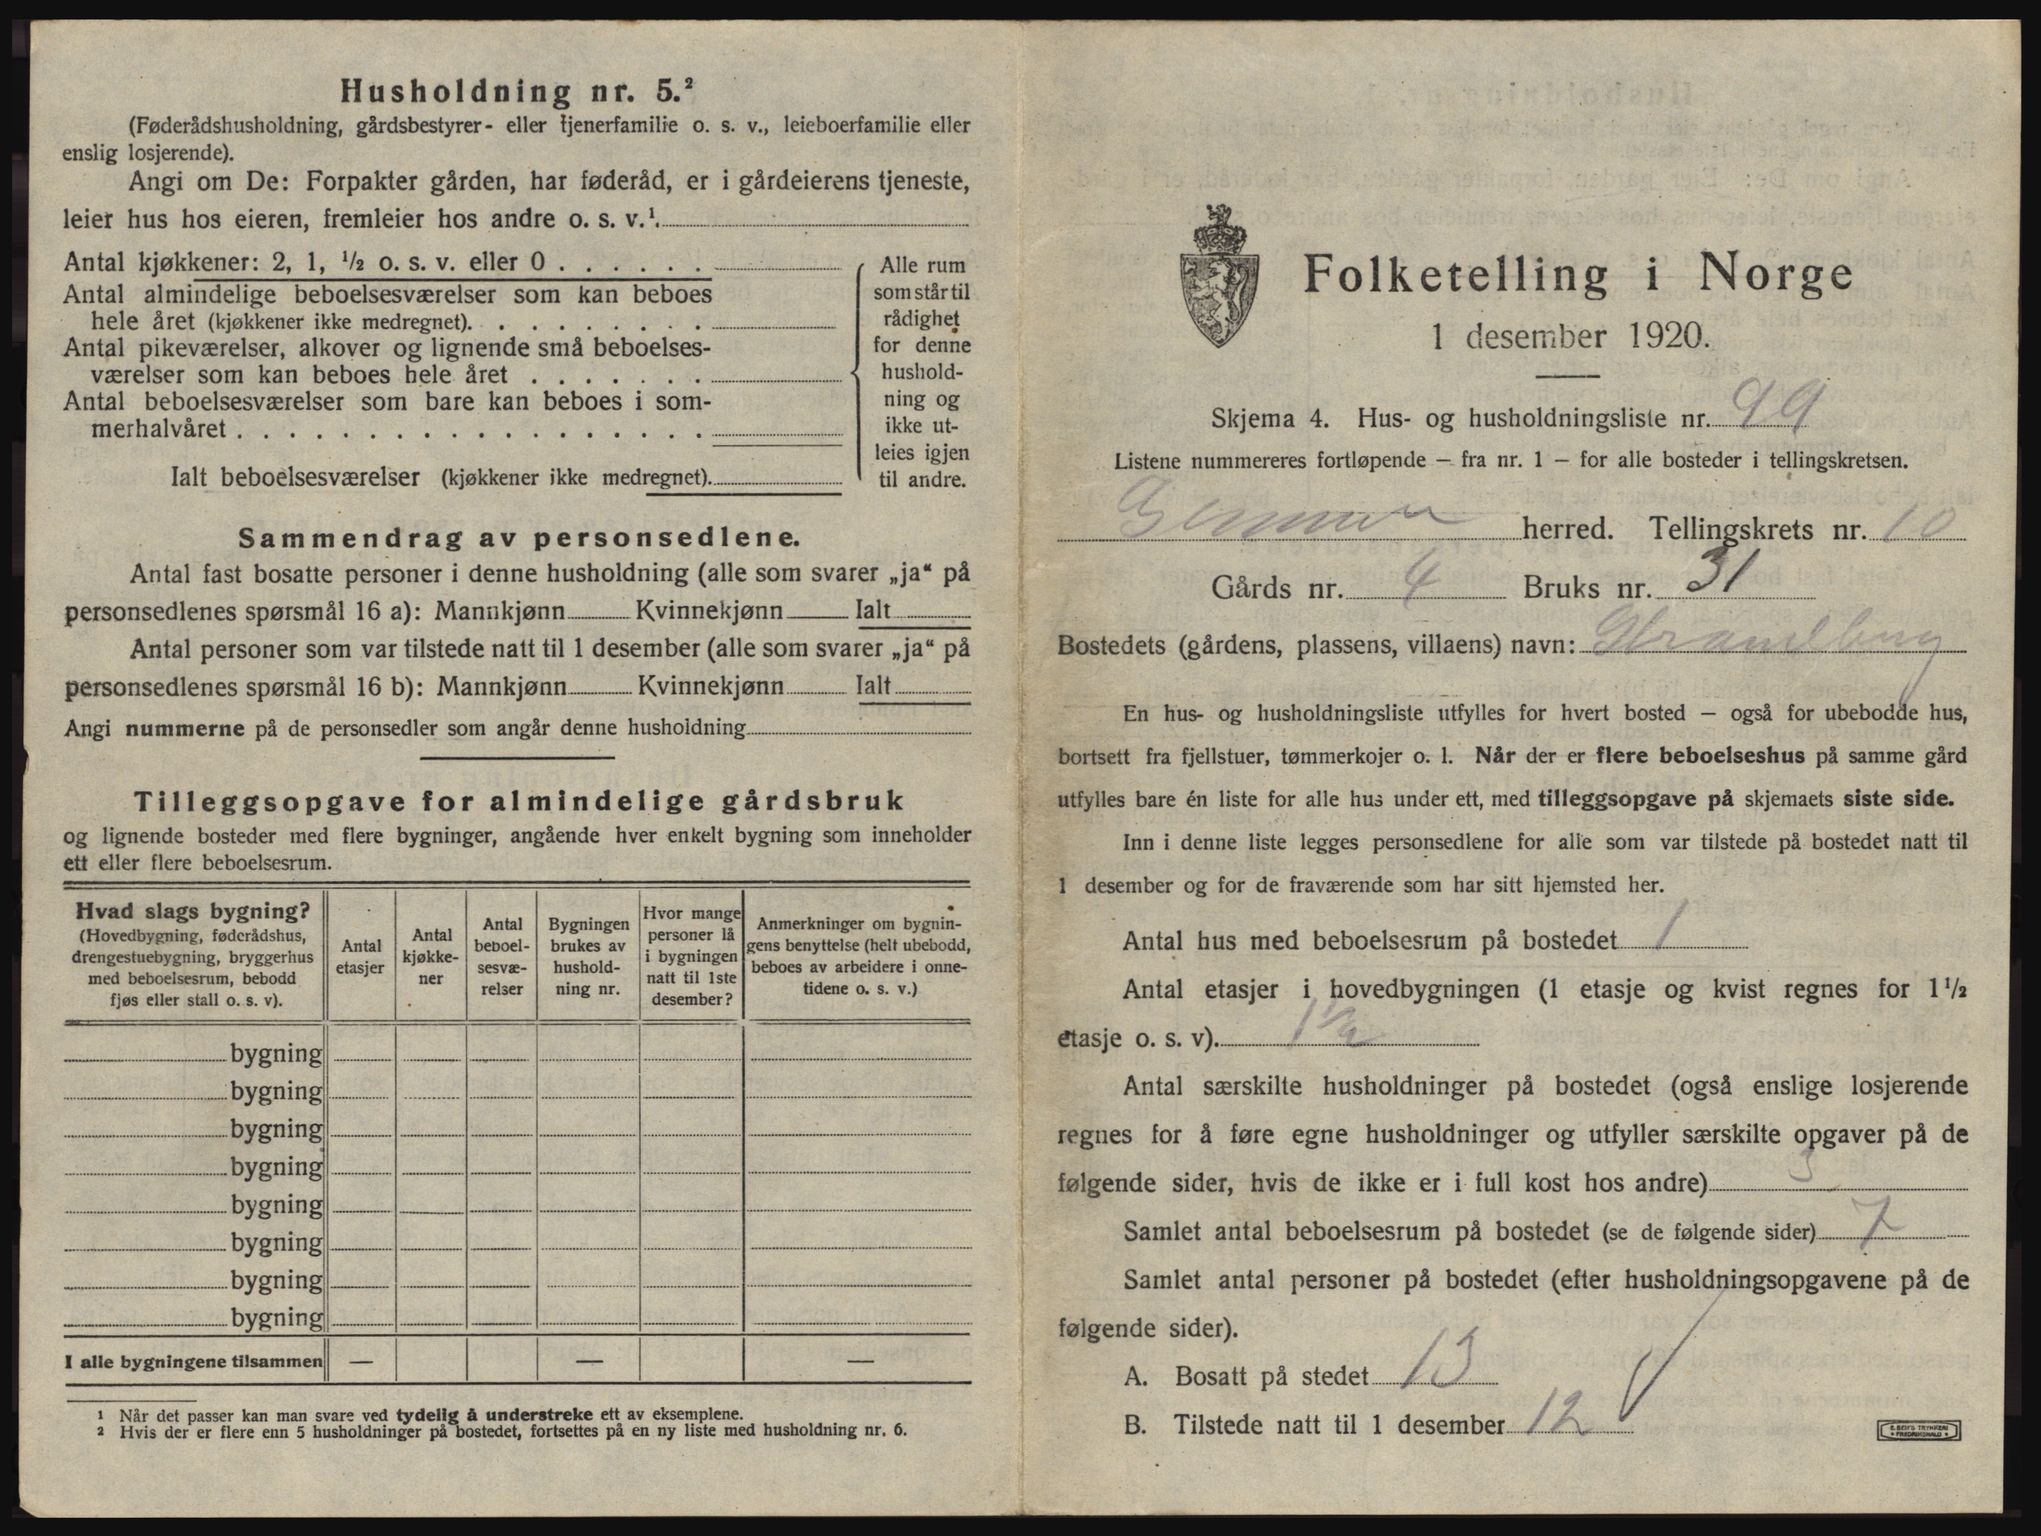 Husholdning nr. 5.²
(Føderådshusholdning, gårdsbestyrer- eller tjenerfamilie o. s. v., leieboerfamilie eller
enslig losjerende).
Angi om De: Forpakter gården, har føderåd, er i gårdeierens tjeneste,
leier hus hos eieren, fremleier hos andre o. s. v.¹.
Antal kjøkkener: 2, 1, ½ o. s. v. eller 0 . . . . . .
Antal almindelige beboelsesværelser som kan beboes
hele året (kjøkkener ikke medregnet). . . . . . . . .
Antal pikeværelser, alkover og lignende små beboelses-
værelser som kan beboes hele året . . . . . . .
Antal beboelsesværelser som bare kan beboes i som-
merhalvåret . . . . . . . . . . . . . . . . . .
Ialt beboelsesværelser (kjøkkener ikke medregnet).
Alle rum
som står til
rådighet
for denne
hushold-
ning og
ikke ut-
leies igjen
til andre.
Sammendrag av personsedlene.
Antal fast bosatte personer i denne husholdning (alle som svarer „ja“ på
personsedlenes spørsmål 16 a): Mannkjønn Kvinnekjønn Ialt
Antal personer som var tilstede natt til 1 desember (alle som svarer „ja“ på
personsedlenes spørsmål 16 b): Mannkjønn Kvinnekjønn Ialt
Angi nummerne på de personsedler som angår denne husholdning
Tilleggsopgave for almindelige gårdsbruk
og lignende bosteder med flere bygninger, angående hver enkelt bygning som inneholder
ett eller flere beboelsesrum.
Hvad slags bygning?
(Hovedbygning, føderådshus,
drengestuebygning, bryggerhus
med beboelsesrum, bebodd
fjøs eller stall o. s. v).
Antal
etasjer
Antal
kjøkke-
ner
Antal
beboel-
sesvæ-
relser
Bygningen
brukes av
hushold-
ning nr.
Hvor mange
personer lå
i bygningen
natt til 1ste
desember?
Anmerkninger om bygnin-
gens benyttelse (helt ubebodd,
beboes av arbeidere i onne-
tidene o. s. v.)
bygning
bygning
bygning
bygning
bygning
bygning
bygning
bygning
I alle bygningene tilsammen — — —
¹ Når det passer kan man svare ved tydelig å understreke ett av eksemplene.
² Hvis der er flere enn 5 husholdninger på bostedet, fortsettes på en ny liste med husholdning nr. 6.
Folketelling i Norge
1 desember 1920.
Skjema 4. Hus- og husholdningsliste nr. 99
Listene nummereres fortløpende – fra nr. 1 – for alle bosteder i tellingskretsen.
herred. Tellingskrets nr. 10
Gårds nr. 4 Bruks nr. 31
Bostedets (gårdens, plassens, villaens) navn: Strandberg
En hus- og husholdningsliste utfylles for hvert bosted – også for ubebodde hus,
bortsett fra fjellstuer, tømmerkojer o. l. Når der er flere beboelseshus på samme gård
utfylles bare én liste for alle hus under ett, med tilleggsopgave på skjemaets siste side.
Inn i denne liste legges personsedlene for alle som var tilstede på bostedet natt til
1 desember og for de fraværende som har sitt hjemsted her.
Antal hus med beboelsesrum på bostedet 1
Antal etasjer i hovedbygningen (1 etasje og kvist regnes for 1 ½
etasje o. s. v). 1½
Antal særskilte husholdninger på bostedet (også enslige losjerende
regnes for å føre egne husholdninger og utfyller særskilte opgaver på de
følgende sider, hvis de ikke er i full kost hos andre) 3
Samlet antal beboelsesrum på bostedet (se de følgende sider) 7
Samlet antal personer på bostedet (efter husholdningsopgavene på de
følgende sider).
A. Bosatt på stedet 13
B. Tilstede natt til 1 desember 12